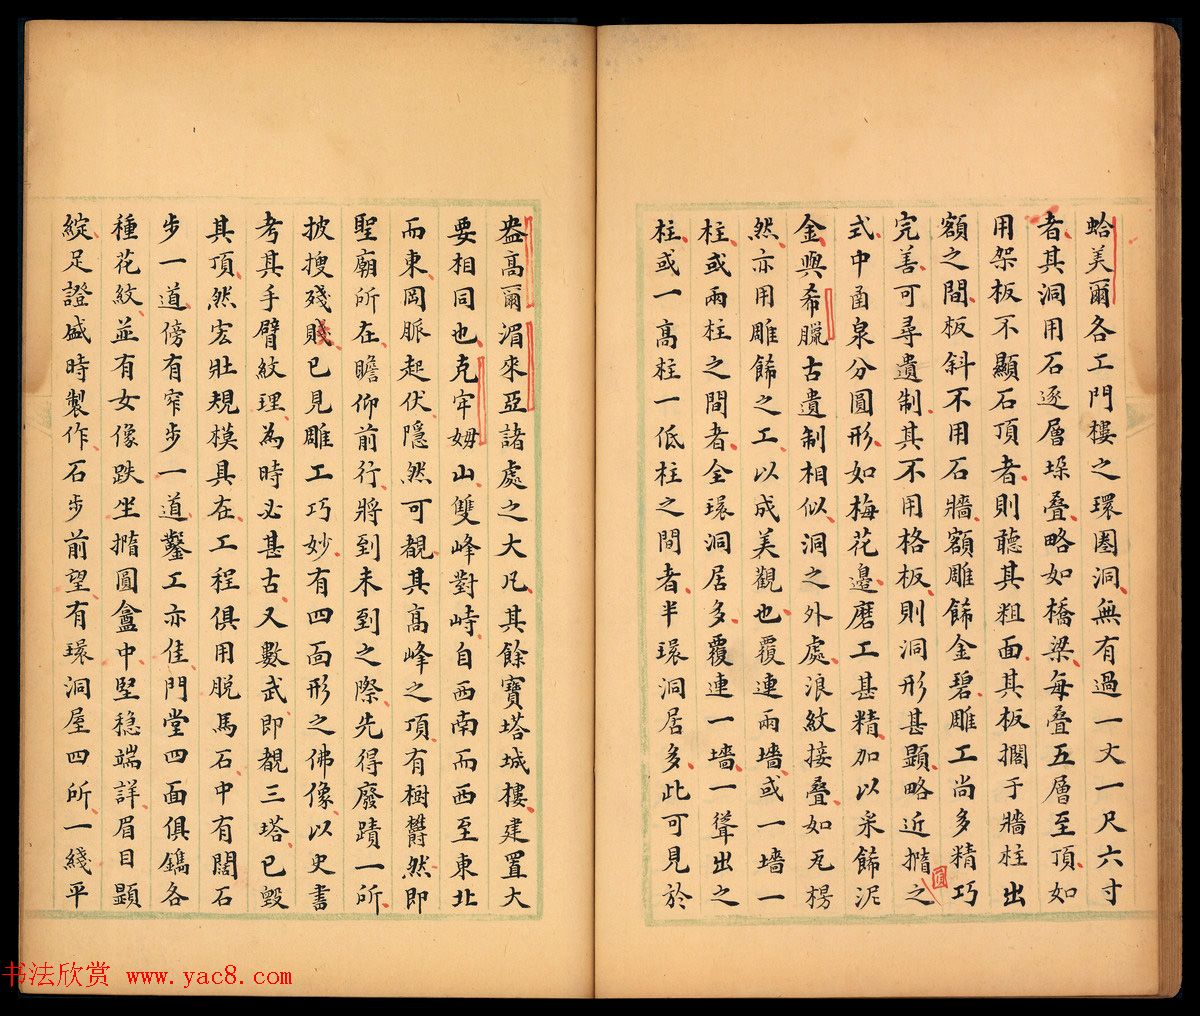 蛤美爾各工門樓之環圏洞無有過一丈一尺六寸
者其洞用石逐層垛疊略如橋梁每疊五層至頂如
用架板不顯石頂者則聽其粗面其板擱于牆柱出
額之間板斜不用石牆額雕飾金碧雕工尚多精巧
完善可尋遺制其不用格板則洞形甚顯略近撱之
圓
式中甬泉分圓形如梅花邊磨工甚精加以采飾泥
金與希臘古遺制相似洞之外處浪紋接疊如瓦楞
然亦用雕飾之工以成美觀也覆連兩墻或一墻一
柱或兩柱之間者全環洞居多覆連一墻一聳出之
柱或一高柱一低柱之間者半環洞居多此可見於
盎高爾湄來亞諸處之大凡其餘寶塔城樓建置大
要相同也克牢姆山雙峰對峙自西南而西至東北
而東岡脈起伏隱然可覩其高峰之頂有樹欝然即
聖廟所在瞻仰前行將到未到之際先得廢蹟一所
披搜殘賤已見雕工巧妙有四面形之佛像以史書
考其手臂紋理為時必甚古又數武即覩三塔已毀
其頂然宏壯規模具在工程俱用脱馬石中有闊石
步一道傍有窄步一道鑿工亦佳門堂四面俱鐫各
種花紋並有女像趺坐撱圓龕中堅穏端詳眉目顕
綻足證盛時製作石步前望有環洞屋四所一綫平
书法欣赏 www.yac8.com